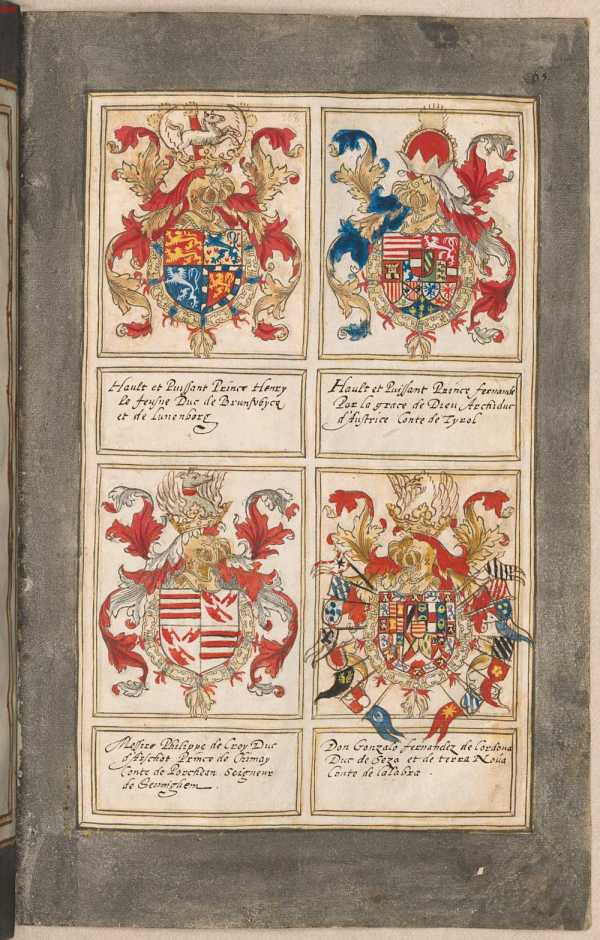 65
Hault et Puissant Prince Henry
le Jeusne Duc de Brunsvbycq
et de Lunenborg
Hault et Puissant Prince fernande
Par la grace de Dieu Archiduc
d'Austrice Conte de Tyrol
Messire Philippe de Croy Duc
d'Arschot Prince de Chimay
Conte de Porchian Seigneur
de
Don Gonzalo fernandez de Cordova
Duc de Seza et de terra Nova
Conte de Calabra.